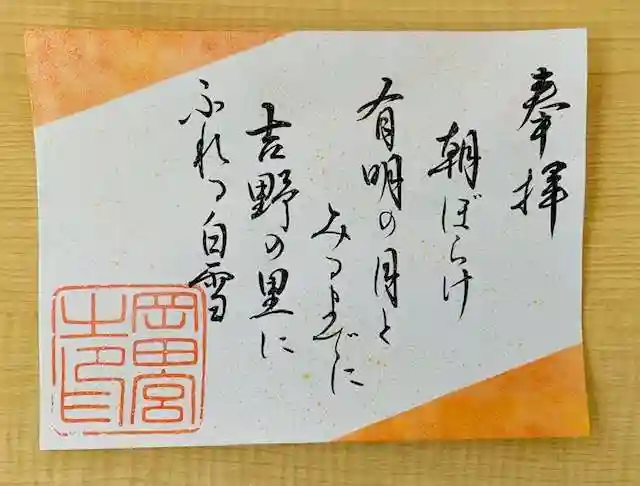 奉拝
朝ぼらけ
有明の月と
みるまでに
吉野の里に
ふれる白雪
岡田宮
之印